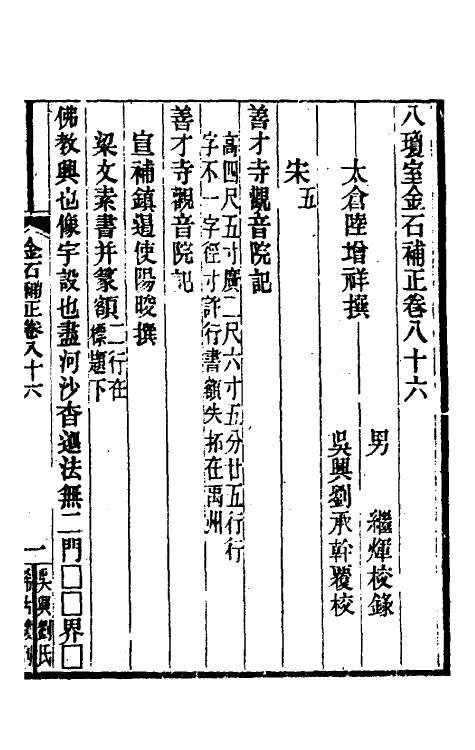 八瓊室金石補正卷八十六
太倉陸增祥撰
男 繼煇校錄
吳興劉承幹覆校
宋五
善才寺觀音院記
高四尺五寸廣二尺六寸五分廿五行行
字不一字徑寸許行書額失拓在禹州
善才寺觀音院記
宣補鎮遏使陽晙撰
梁文素書并篆額二行在
標題下
佛教興也像宇設也盡河沙杳逥法無二門□□界□
金石補正卷八十六
一
吳興劉氏
希古樓刊